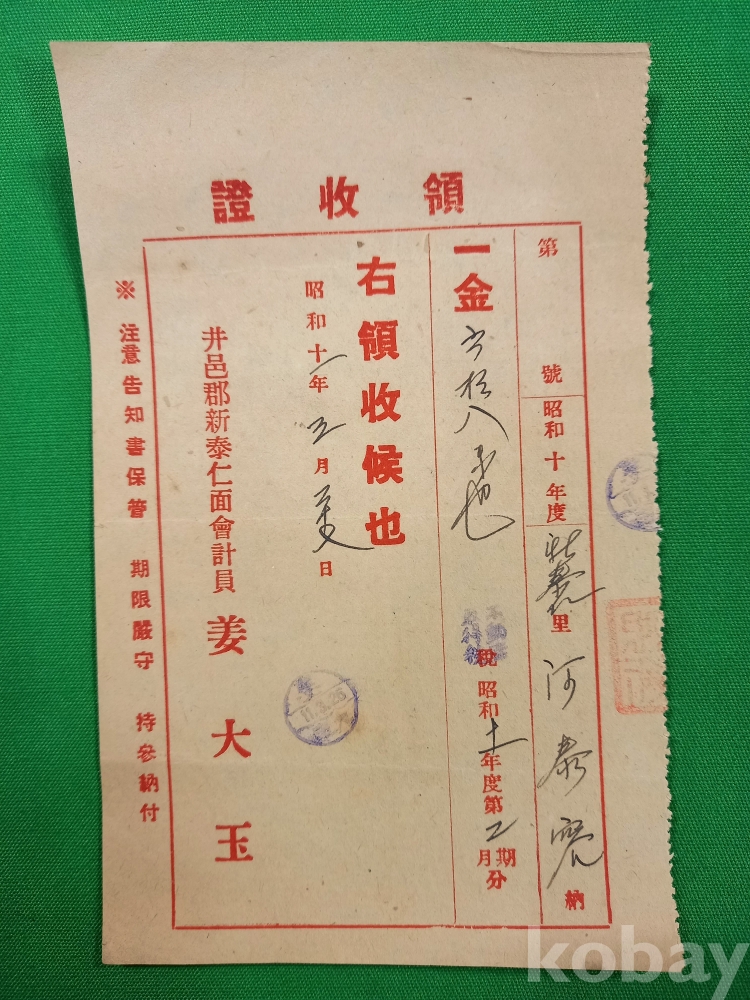 領收證
第 號 昭和十年度 里 河泰 納
一金 拾八 也 稅 昭和十一年度第 期 月 分
右領收候也
昭和十一年 五月 日
井邑郡新泰仁面會計員 姜大玉
※ 注意告知書保管 期限嚴守 持參納付
kobay